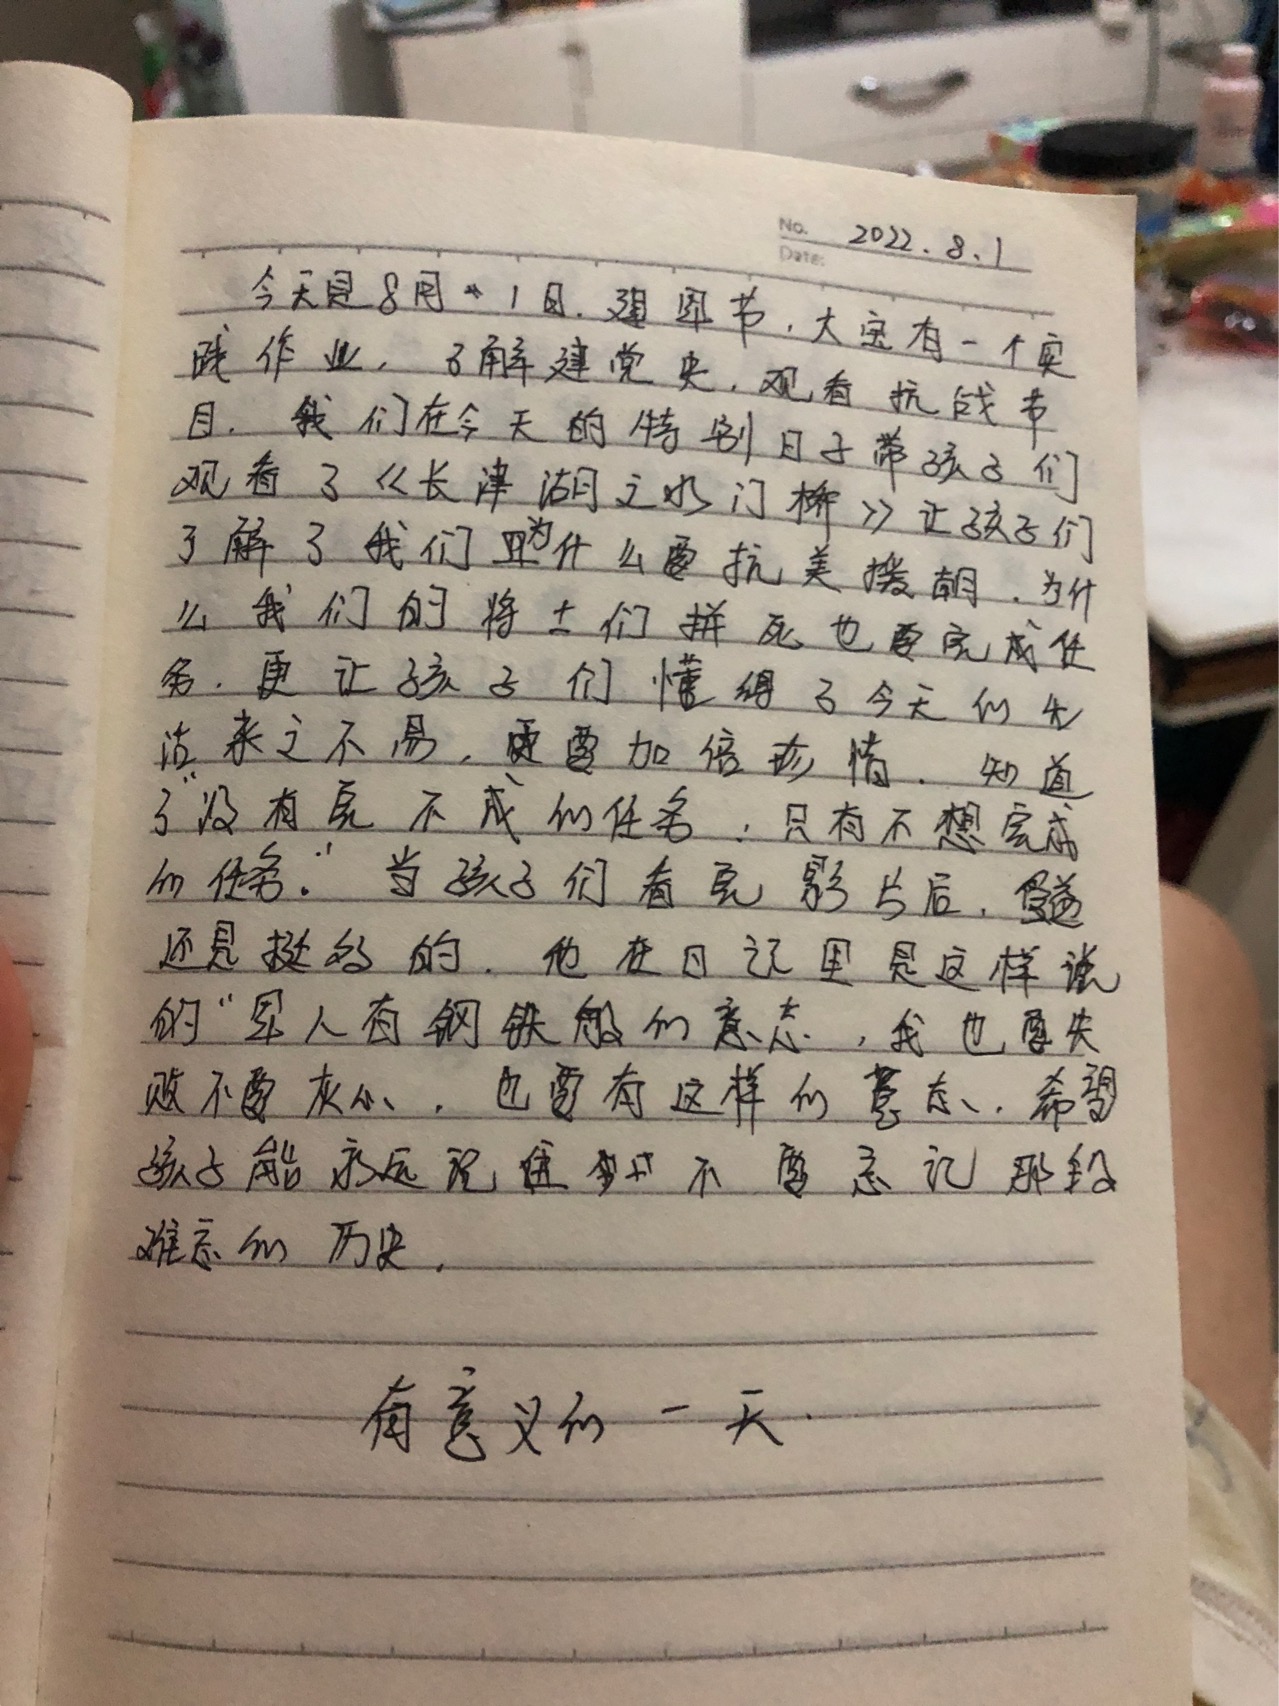 No. 2022.8.1
Date:
今天是8月1日.建军节,大宝有一个实
践作业,了解建党史,观看抗战节
目.我们在今天的特别日子带孩子们
观看了《长津湖之水门桥》让孩子们
了解了我们为什么要抗美援朝.为什
么我们的将士们拼死也要完成任
务.更让孩子们懂得了今天的生
活来之不易,更要加倍珍惜.知道
了"没有完不成的任务,只有不想完成
的任务."当孩子们看完影片后,受益
还是挺多的.他在日记里是这样说
的"军人有钢铁般的意志,我也要失
败不要灰心,也要有这样的意志.希望
孩子能永远记住不要忘记那段
难忘的历史.
有意义的一天.